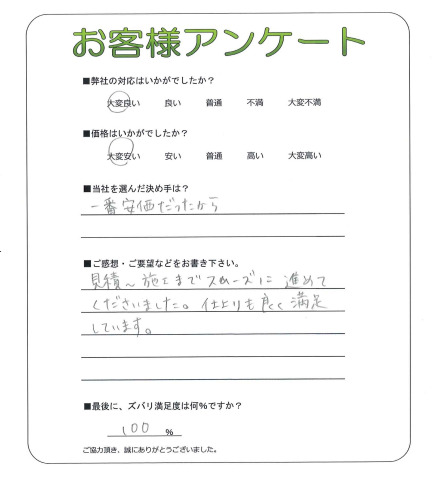 お客様アンケート
■弊社の対応はいかがでしたか？
大変良い 良い 普通 不満 大変不満
■価格はいかがでしたか？
大変安い 安い 普通 高い 大変高い
■当社を選んだ決め手は？
一番安価だったから
■ご感想・ご要望などをお書き下さい。
見積〜施工までスムーズに進めて
くださいました。仕上りも良く満足
しています。
■最後に、ズバリ満足度は何%ですか？
100 %
ご協力頂き、誠にありがとうございました。